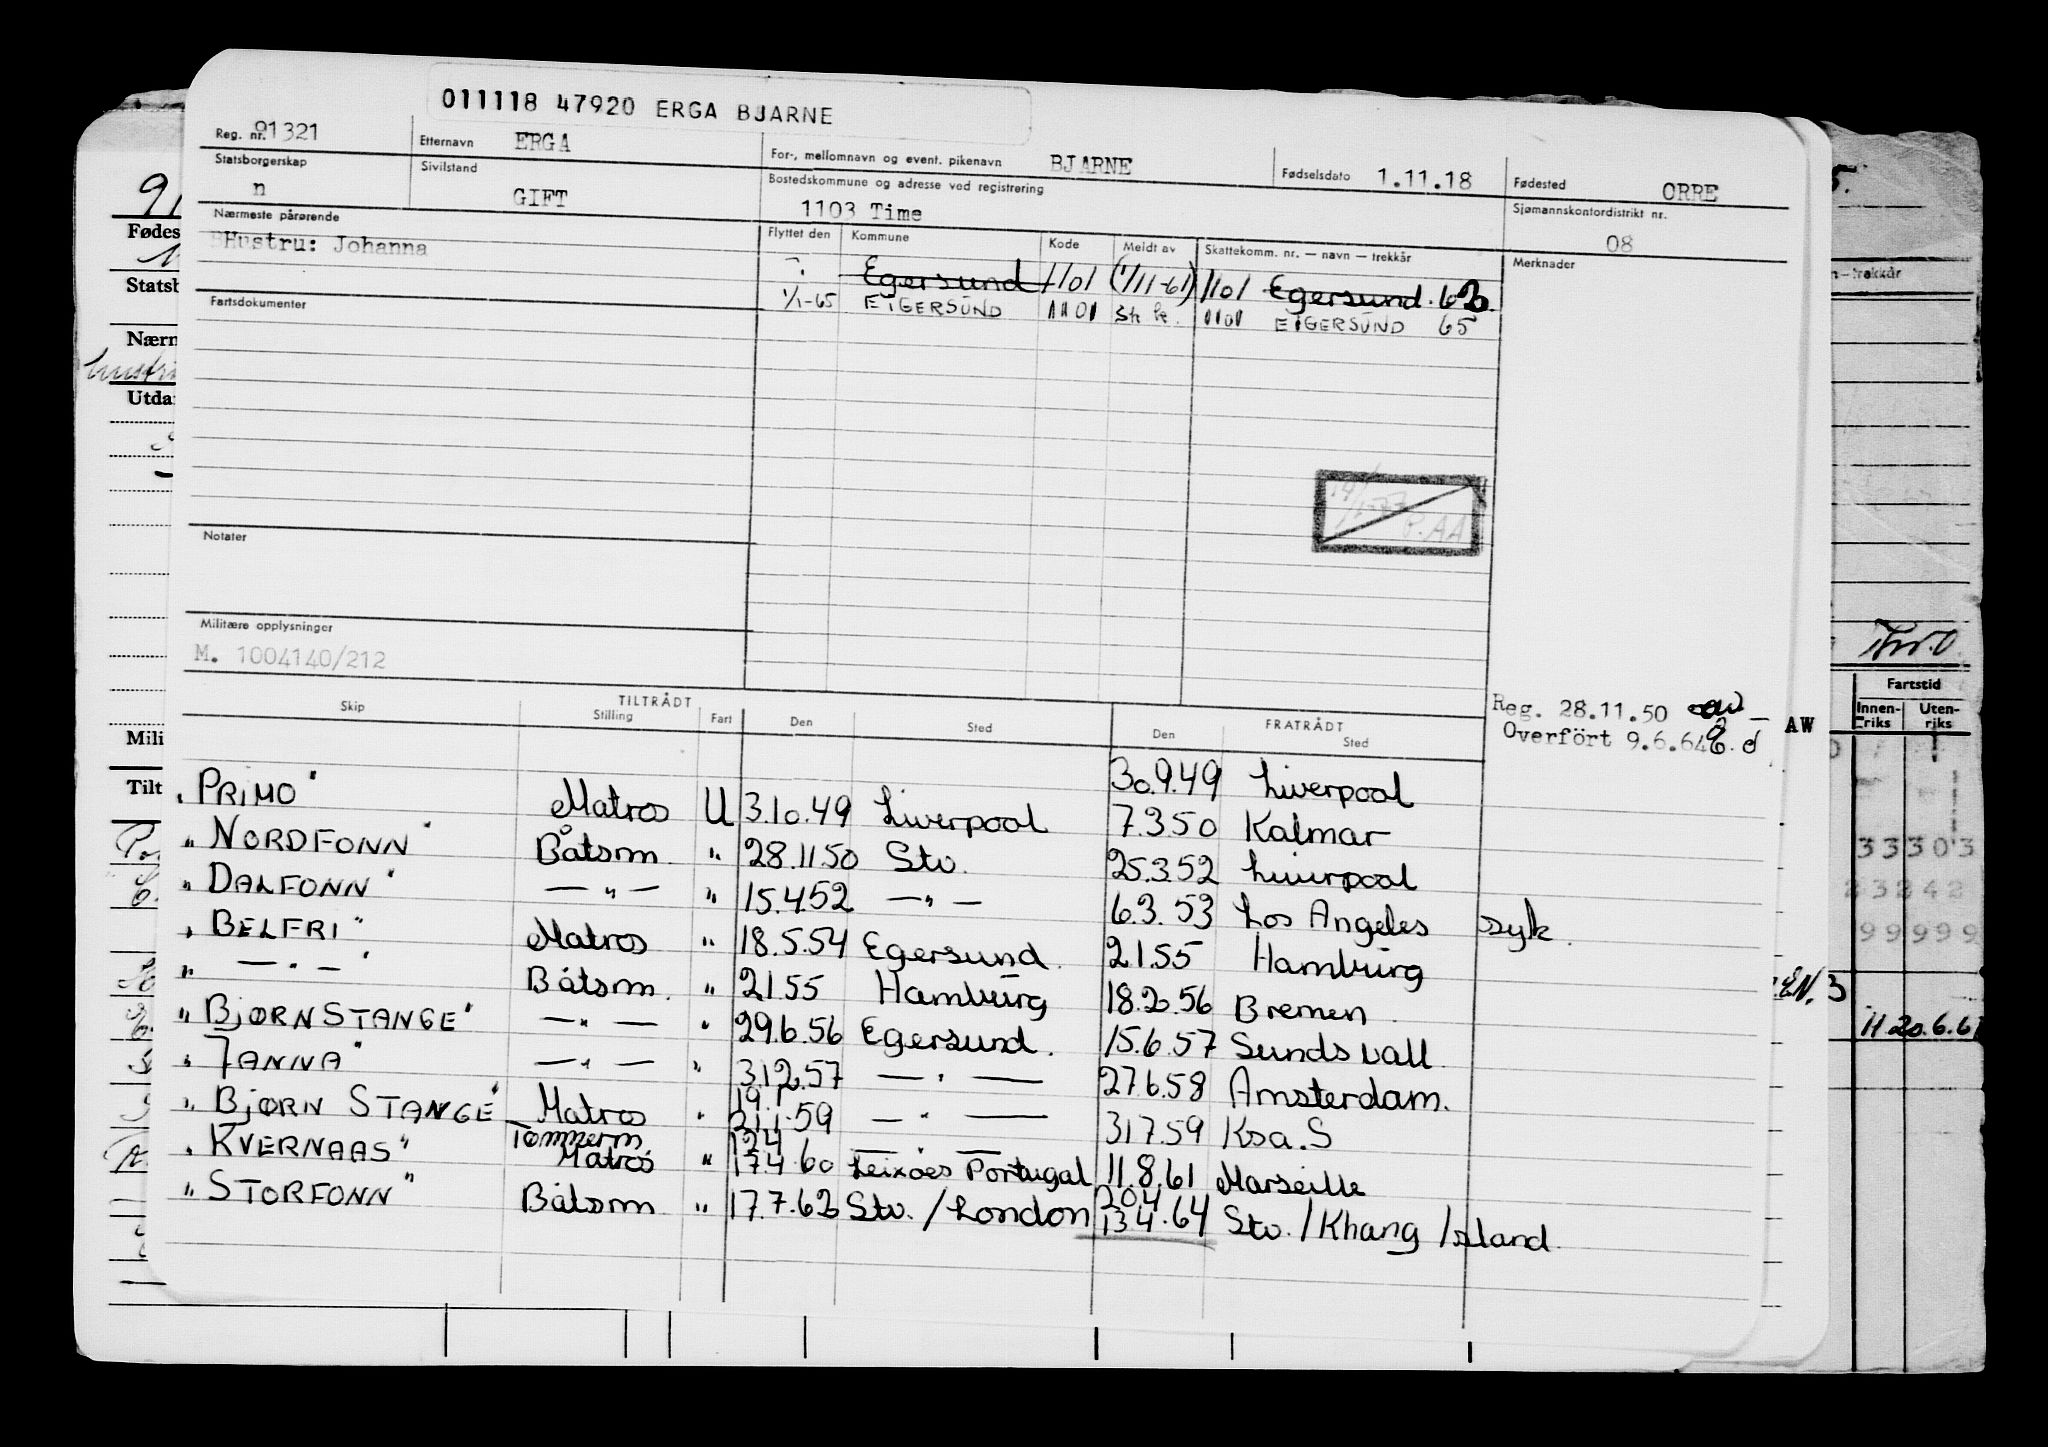 011118 47920 ERGA BJARNE
Reg. nr. 91321 Etternavn ERGA For-, mellomnavn og event. pikenavn BJARNE Fødselsdato 1.11.18 Fødested ORRE
Statsborgerskap n Sivilstand GIFT Bostedskommune og adresse ved registrering 1103 Time Sjømannskontordistrikt nr. 08
Nærmeste pårørende Flyttet den Kommune Kode Meldt av Skattekomm. nr. — navn — trekkår Merknader
Hustru: Johanna Egersund 1101 (1/11-61) 1101 Egersund
Fartsdokumenter 1/1-65 EIGERSUND 1101 1101 EIGERSUND 65
Notater
Militære opplysninger
M. 1004140/212
Reg. 28.11.50
Overfört 9.6.64
AW
Skip TILTRÅDT Stilling Fart Den Sted FRATRÅDT Den Sted
30.9.49 Liverpool
"PRIMO" Matros U 3.10.49 Liverpool 7.3.50 Kalmar
"NORDFONN" Båtsm. " 28.11.50 Stv. 25.3.52 Liverpool
"DALFONN" — " — " 15.4.52 — " — 6.3.53 Los Angeles syk.
"BELFRI" Matros " 18.5.54 Egersund. 2.1.55 Hamburg
" — " — " Båtsm. " 2.1.55 Hamburg 18.2.56 Bremen.
"BJØRN STANGE" — " — " 29.6.56 Egersund. 15.6.57 Sundsvall.
"JANNA" — " — " 3.12.57 — " — 27.6.58 Amsterdam.
"BJØRN STANGE" Matros " 19.1 21.1.59 — " — 31.7.59 Ksa. S
"KVERNAAS" Tømmerm. Matros " 12.4 17.4.60 — " — Leixoes Portugal 11.8.61 Marseille
"STORFONN" Båtsm. " 17.7.62 Stv. / London 20.4 13.4.64 Stv. / Khang Island
Fødes
Statsb
Nærm
Utda
Mili
Tilt
-trekkår
Fartstid
Innen-riks Uten-riks
33303
99999
11 20.6.6